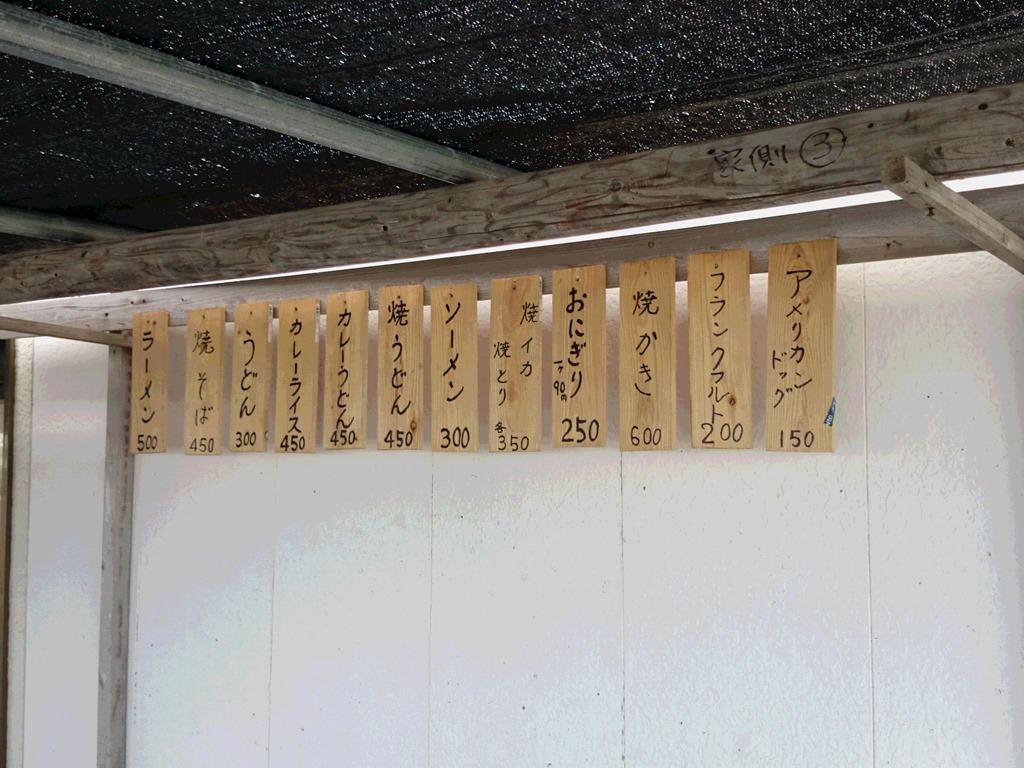 裏側 ③
アメリカン
ドッグ
150
フランクフルト
200
焼かき
600
おにぎり
250
焼イカ
焼とり
各
350
ソーメン
300
焼うどん
450
カレーうどん
450
カレーライス
450
うどん
300
焼そば
450
ラーメン
500